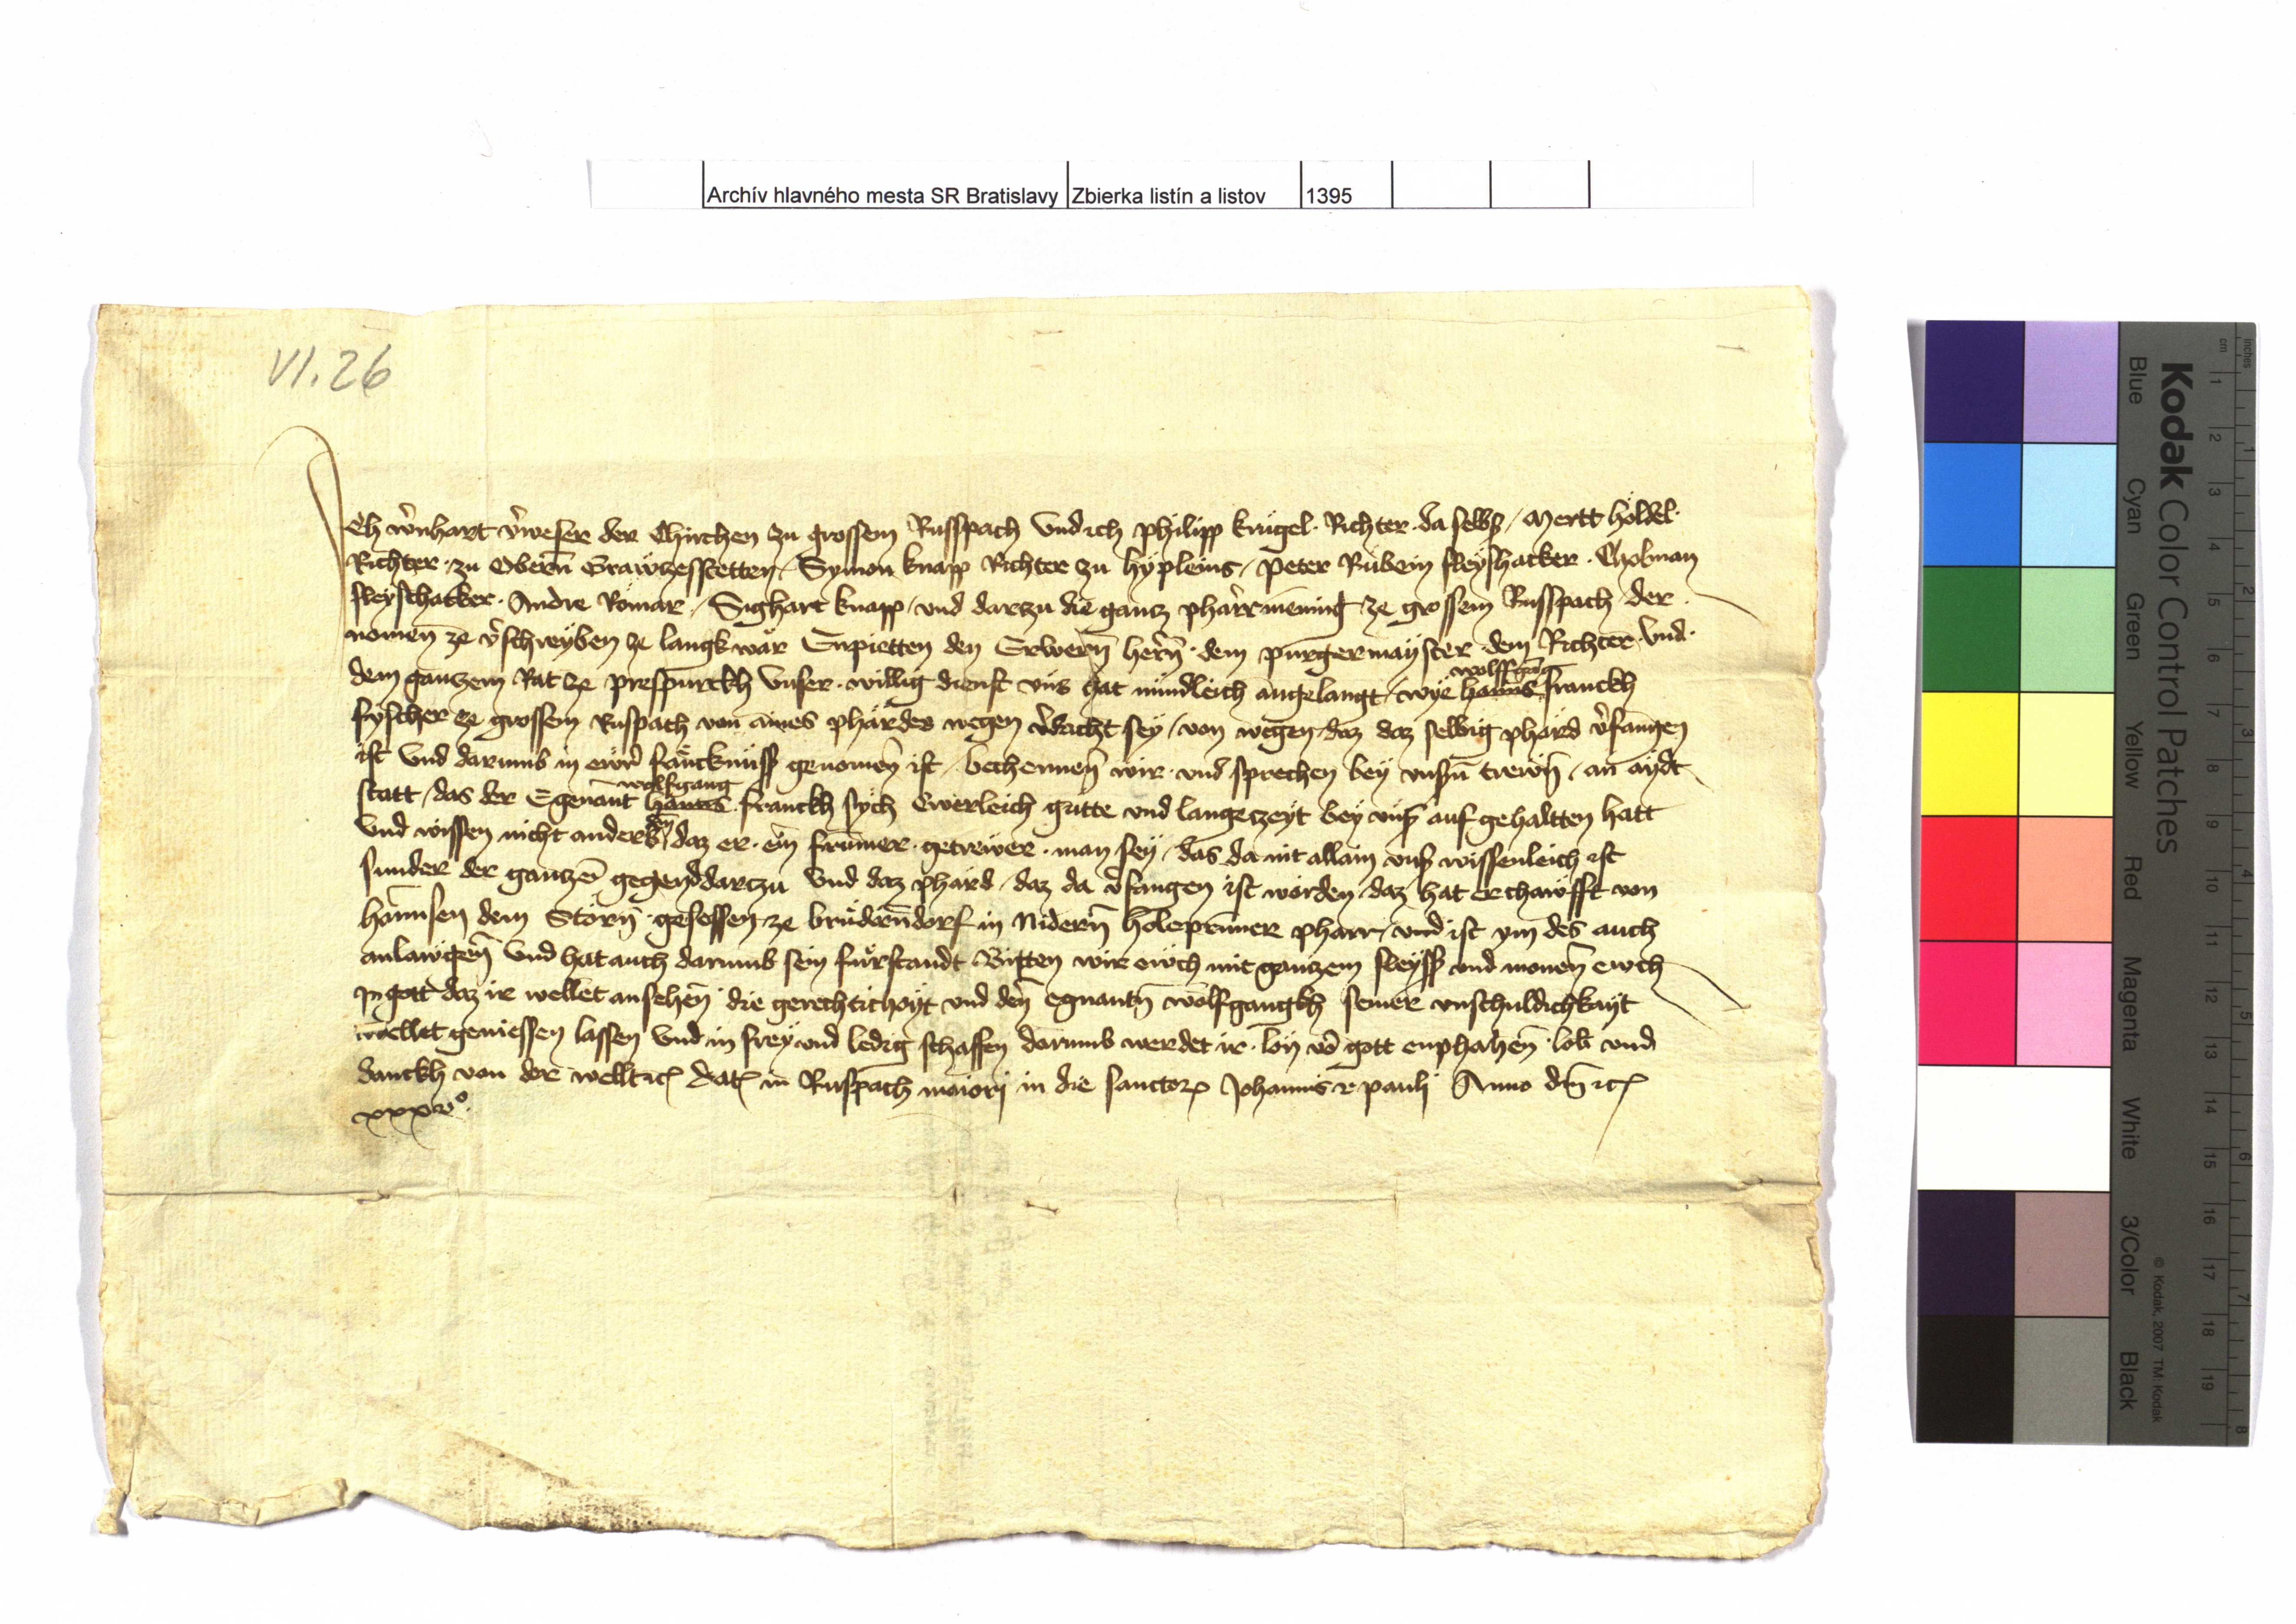 Archív hlavného mesta SR Bratislavy Zbierka listín a listov 1395
VI. 26
Ich w̄nhart v̄weser der Chirchen zu grossem Russpach vnd ich philipp krugel Richter da selbs / Mertt höldel
Richter zu Obern̄ Grawczesstetten / Symon knapp Richter zu hypleins / Peter Rubein fleyshacker Cholman
fleyschacker Andre Römar / Sighart knapp / vnd darczu die gancz pharrmening ze grossem Russpach der
nomen ze v̄schreyben ze langk wär Enpietten den Erwern̄ hern̄ dem purgermayster dem Richter vnd
dem ganczem Rat ze prespurckh vnser willig dienst vns hat mündleich angelangt / wye wolffgang franckh
fyscher ze grossem Ruspach von aines phärdes wegen v̄dacht sey / von wegen daz daz selbig phärd v̄fangen
ist vnd darumb in ewr̄ fäncknüss genomen̄ ist / bechennen̄ wir vnd sprechen bey vnsn̄ trewn̄ / an aydt
statt / das der Egenant wolfgang franckh sych Erwerleich gutte vnd lange zeyt bey vns auf gehaltten hatt
vnd wissen nicht anders den daz er ein frumer getrewer man sey / das da nit allain vns wissenleich ist
sunder der ganczen̄ gegend darczu vnd daz phärd / daz da v̄fangen ist worden / daz hat er chawfft von
hannsen dem Störn̄ gesessen ze bruderndorf in Nidern̄ holeprunner pharr / vnd ist ym des auch
anlawgen̄ vnd hat auch darumb sein fürstandt Bitten wir ewch mit ganczem fleyss vnd monen̄ ewch
In gott daz ir wellet ansehen̄ die gerechtichayt vnd den̄ egnantn̄ wolfgangkh seiner vnschuldichkayt
wellet geniessen lassen vnd in frey vnd ledig schaffen darumb werdet ir lon vō gott enphahen̄ lob vnd
danckh von der welltt etc Dat in Ruspach maiori in die sanctor Johannis et pauli Anno dn̄i etc
xxxvº
Kodak Color Control Patches
Blue Cyan Green Yellow Red Magenta White 3/Color Black
© Kodak, 2007 TM: Kodak
inches 1 2 3 4 5 6 7 8
cm 1 2 3 4 5 6 7 8 9 10 11 12 13 14 15 16 17 18 19